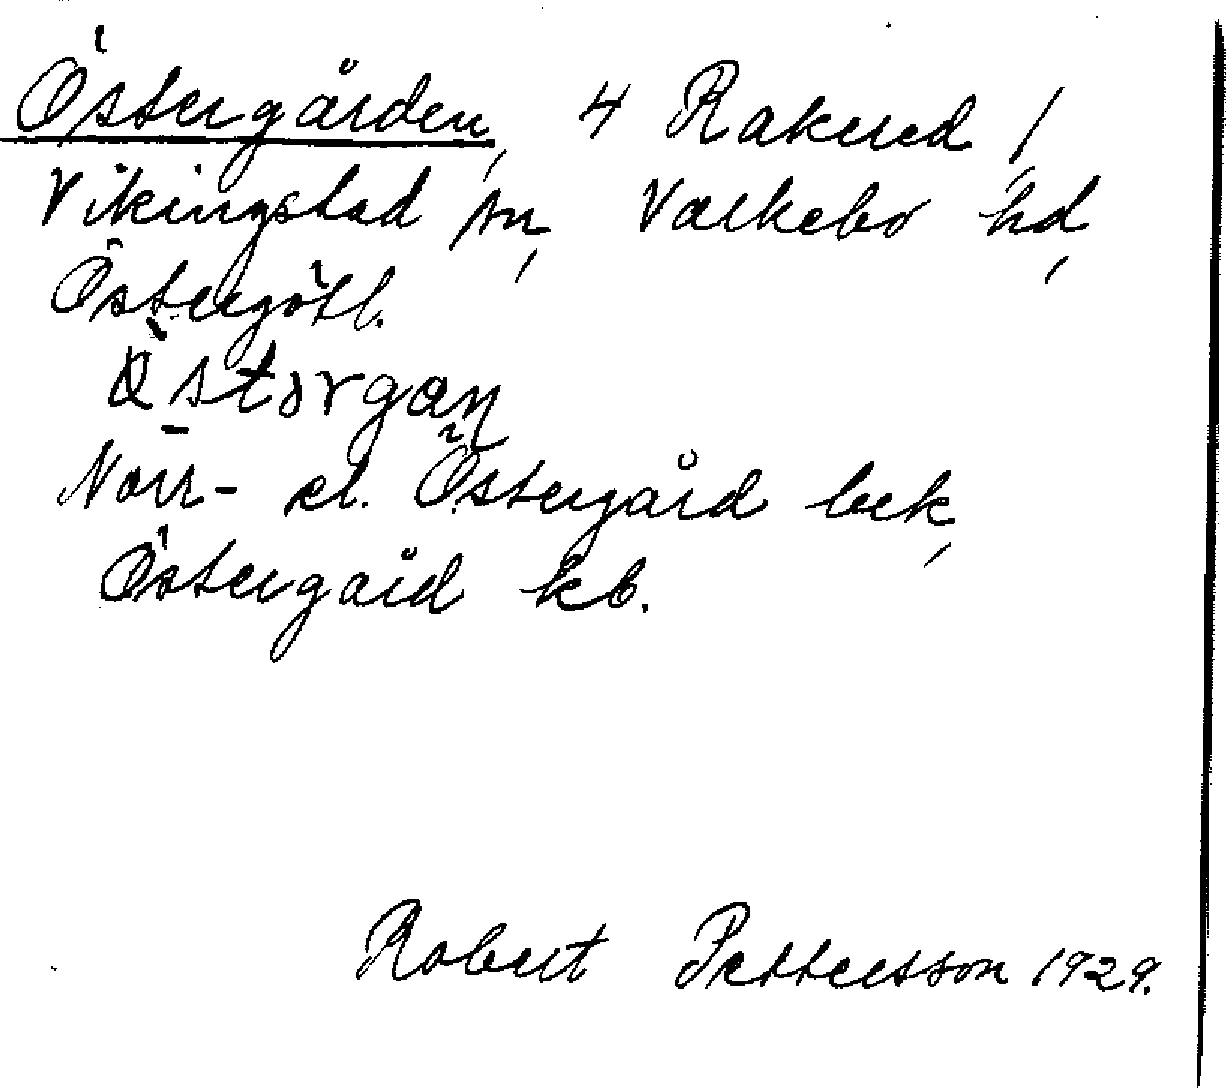 Östergården, 4 Rakered /
Vikingstad sn, Valkebo hd,
Östergötl.
Norr- el. Östergård bek,
Östergård kb.
Robert Pettersson 1929.